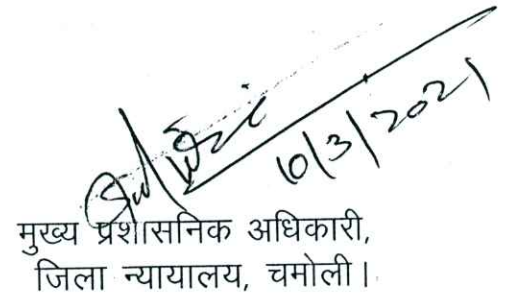 6/3/2021
मुख्य प्रशासनिक अधिकारी,
जिला न्यायालय, चमोली।